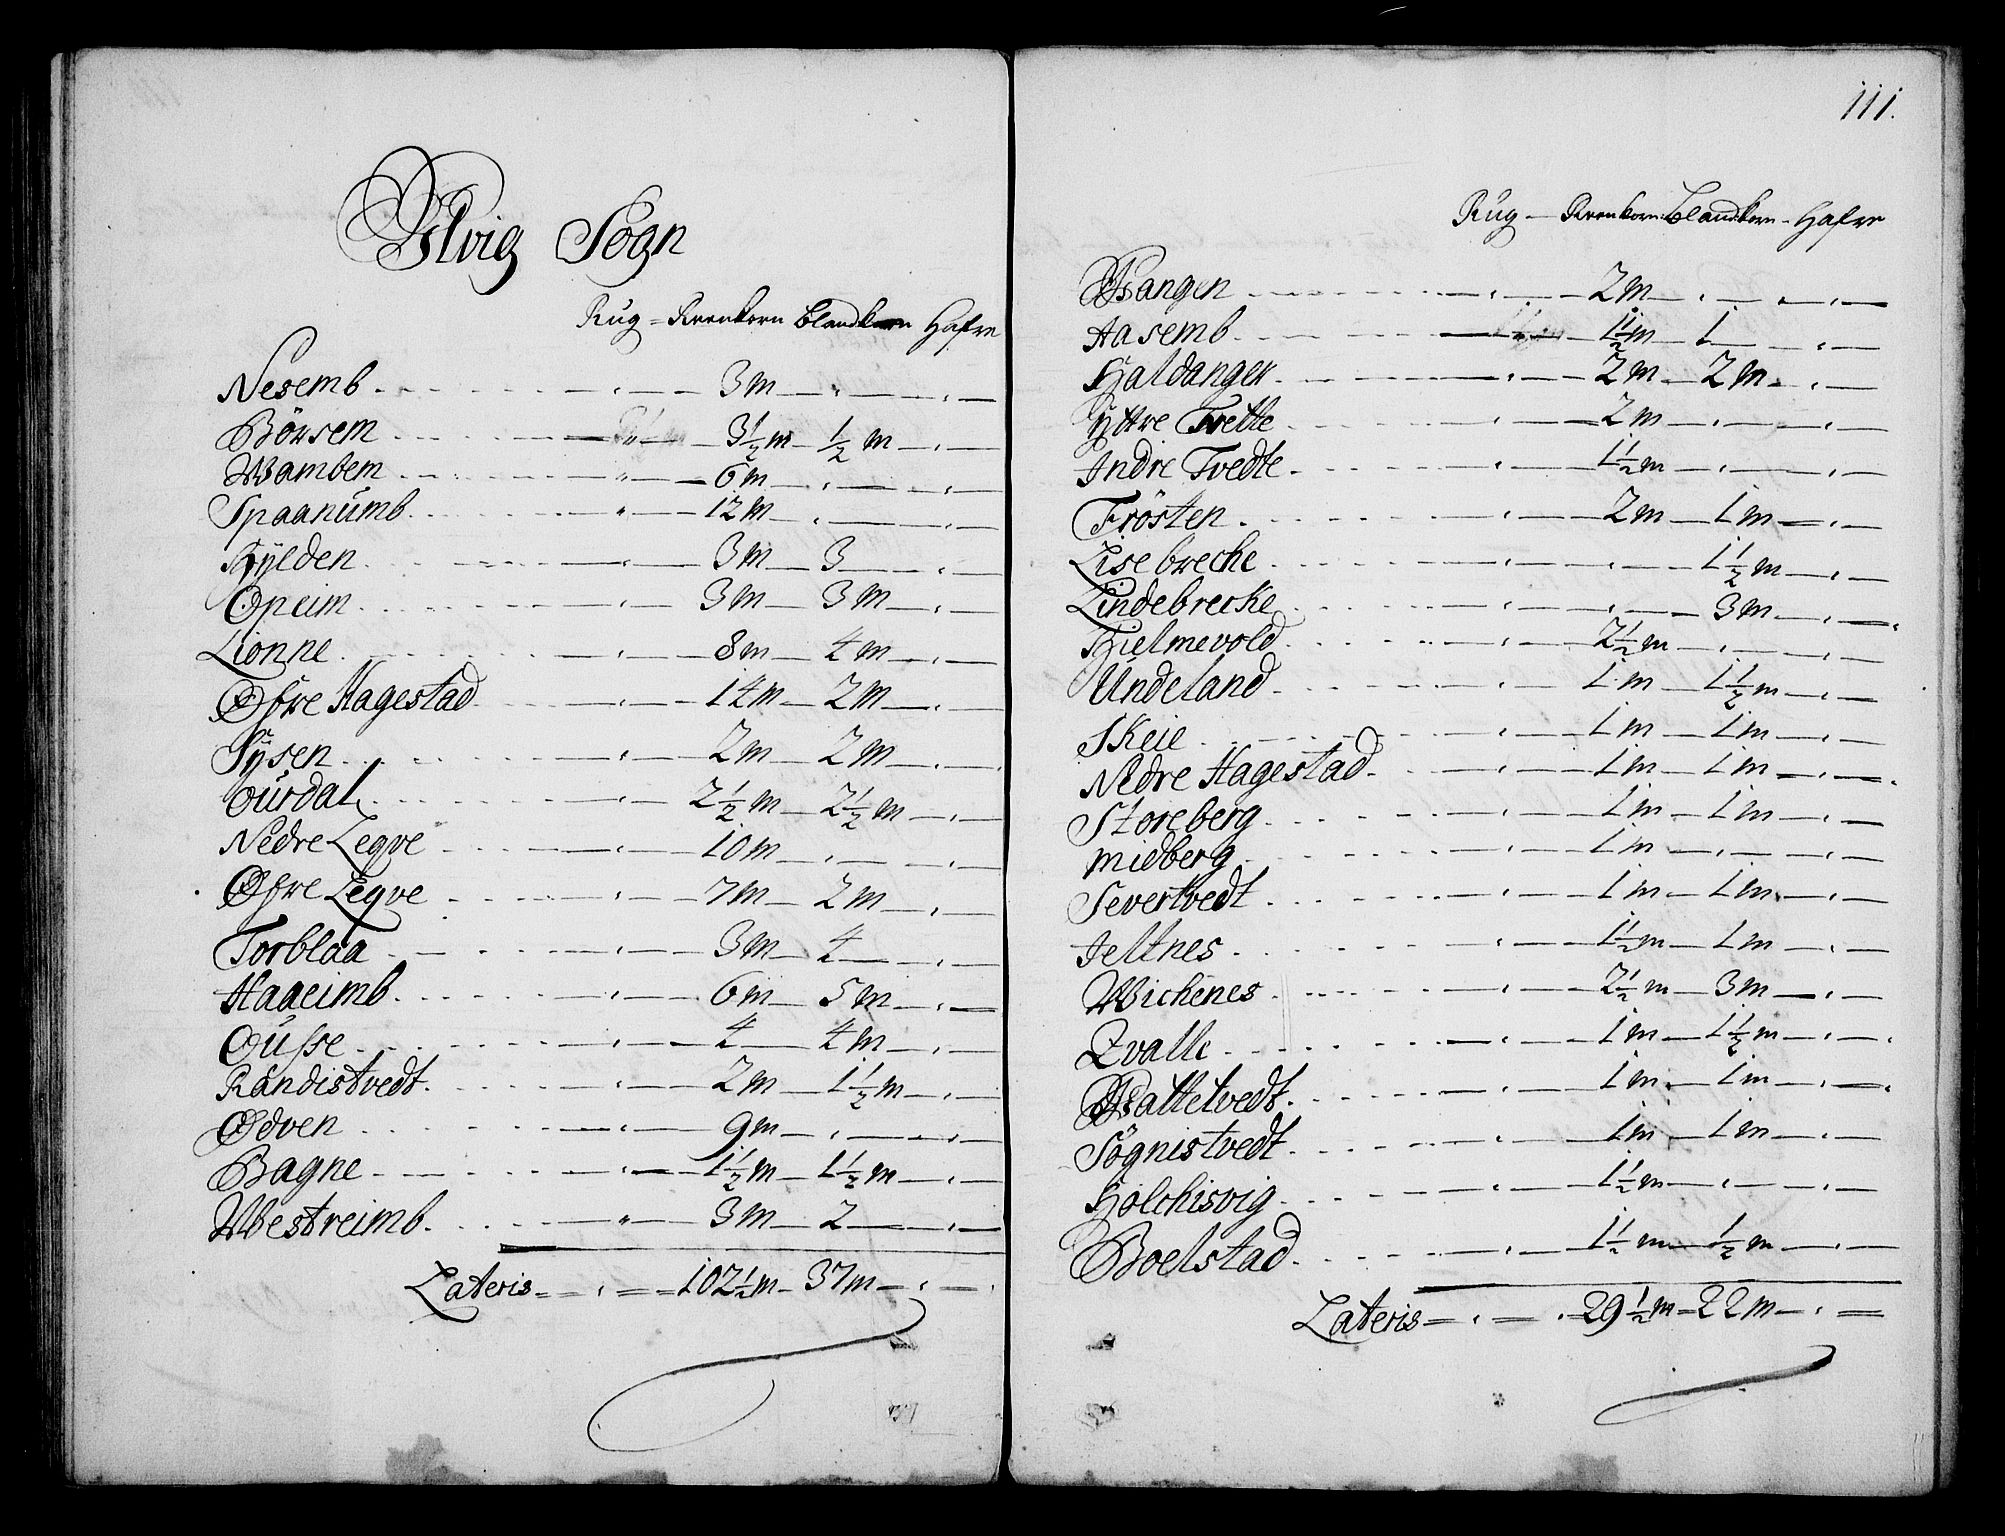 Ulvig Sogn
Rug - Reenkorn Blandkorn Hafre
Nesemb - 3 m
Börsem - 3½ m - ½ m
Wambem - 6 m
Spaanumb - 12 m
Hÿlden - 3 m - 3
Opeim - 3 m - 3 m
Lionne - 8 m - 4 m
Øfre Hagestad - 14 m - 2 m
Sÿsen - 2 m - 2 m
Ourdal - 2½ m - 2½ m
Nedre Legve - 10 m
Øfre Legve - 7 m - 2 m
Torblaa - 3 m - 4
Haaeimb - 6 m - 5 m
Ousse - 4 - 4 m
Randistvedt - 2 m - 1½ m
Ødven - 9 m
Bagne - 1½ m - 1½ m
Westreimb - 3 m - 2
Lateris - 102½ m - 37 m
111.
Rug - Reenkorn Blandkorn - Hafre
Osangen - 2 m
Aasemb - 1½ m - 1
Haldanger - 2 m - 2 m
Yttre Tvette - 2 m
Indre Tvedte - 1½ m
Frösten - 2 m - 1 m
Lisebrecke - 1½ m
Lindebrecke - 3 m
Hielmevold - 2½ m
Undeland - 1 m - 1½ m
Skeie - 1 m - 1 m
Nedre Hagestad - 1 m - 1 m
Storeberg - 1 m - 1 m
midberg - 1 m
Severtvedt - 1 m - 1 m
Jeltnes - 1½ m - 1 m
Wichenes - 2½ m - 3 m
Qvalle - 1 m - 1½ m
Hattetvedt - 1 m - 1 m
Sögnistvedt - 1 m - 1 m
Holchisvig - 1½ m
Boelstad - 1½ m - ½ m
Lateris - 29½ m - 22 m